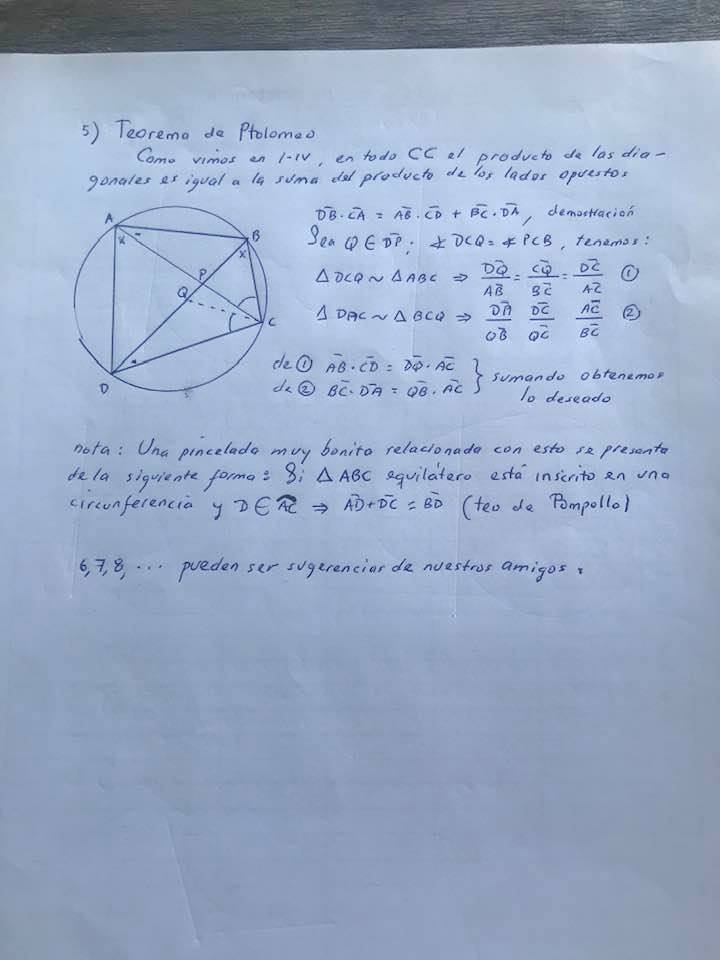 5) Teorema de Ptolomeo
Como vimos en I-IV, en todo CC el producto de las dia-
gonales es igual a la suma del producto de los lados opuestos
A
B
C
D
P
Q
x
x
D̄B̄·C̄Ā = ĀB̄·C̄D̄ + B̄C̄·D̄Ā, demostración
Sea Q ∈ D̄P̄; ∡DCQ = ∡PCB, tenemos:
△DCQ ~ △ABC ⇒ D̄Q̄/ĀB̄ = C̄Q̄/B̄C̄ = D̄C̄/ĀC̄ ①
△DAC ~ △BCQ ⇒ D̄Ā/Q̄B̄ D̄C̄/Q̄C̄ ĀC̄/B̄C̄ ②
de ① ĀB̄·C̄D̄ = D̄Q̄·ĀC̄
de ② B̄C̄·D̄Ā = Q̄B̄·ĀC̄ } sumando obtenemos
lo deseado
nota: Una pincelada muy bonita relacionada con esto se presenta
de la siguiente forma: Si △ABC equilátero está inscrito en una
circunferencia y D ∈ A͡C ⇒ ĀD̄+D̄C̄ = B̄D̄ (teo de Pompollo)
6,7,8, ... pueden ser sugerencias de nuestros amigos.